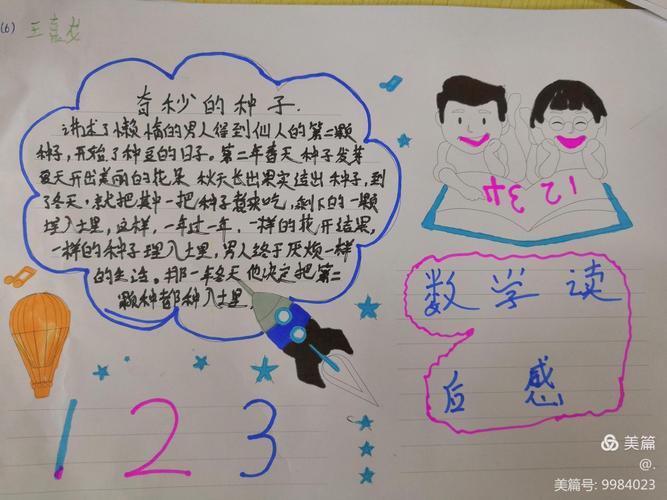 (6) 王嘉龙
奇秒的种子.
讲述了懒惰的男人得到仙人的第二颗
种子,开始了种豆的日子。第二年春天种子发芽
夏天开出美丽的花朵 秋天长出果实结出种子,到
了冬天,就把其中一把种子煮来吃,剩下的一颗
埋入土里,这样,一年过一年,一样的花开结果,
一样的种子埋入土里,男人终于厌烦一样
的生活。那一年冬天他决定把第二
颗种都种入土里,
1 2 3 4
数学读
后感
1 2 3
美篇
@.
美篇号: 9984023